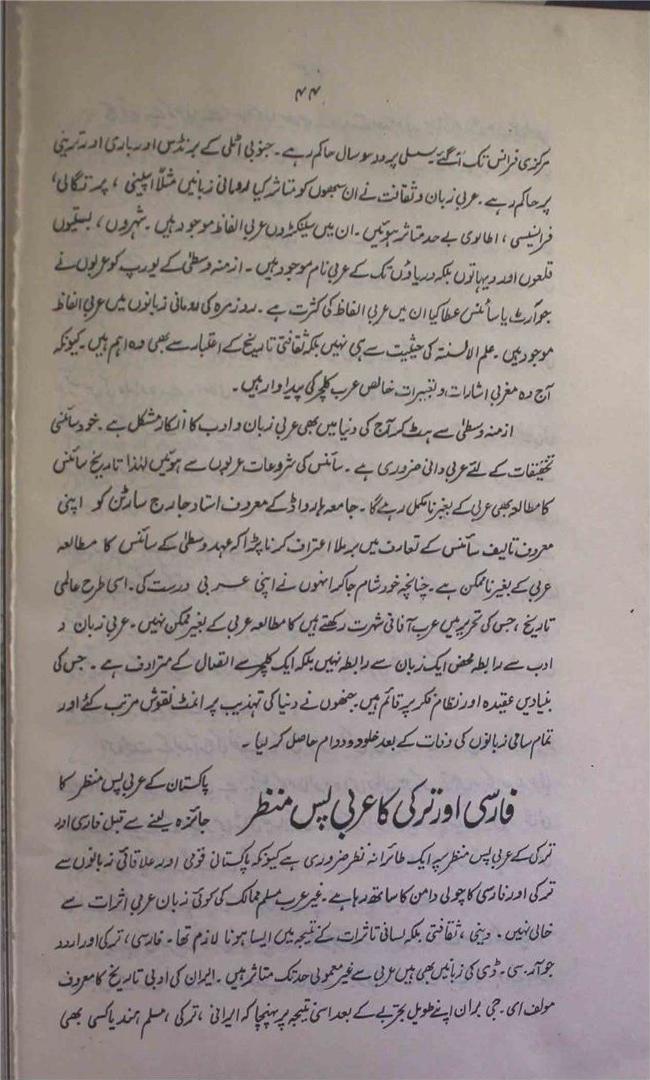 ۴۴
مرکزی فرانس تک آگئے۔ سسلی پر دو سو سال حاکم رہے۔ جنوبی اٹلی کے برنڈس اور باری اور ترینی
پر حاکم رہے۔ عربی زبان و ثقافت نے ان سبھوں کو متاثر کیا رومانی زبانیں مثلاً اسپینی، پرتگالی،
فرانیسی، اطالوی بے حد متاثر ہوئیں۔ ان میں سینکڑوں عربی الفاظ موجود ہیں۔ شہروں، بستیوں
قلعوں اور دیہاتوں بلکہ دریاؤں تک کے عربی نام موجود ہیں۔ ازمنہ وسطیٰ کے یورپ کو عربوں نے
جو آرٹ یا سائنس عطا کیا ان میں عربی الفاظ کی کثرت ہے۔ روزمرہ کی رومانی زبانوں میں عربی الفاظ
موجود ہیں۔ علم الالسنہ کی حیثیت سے ہی نہیں بلکہ ثقافتی تاریخ کے اعتبار سے بھی وہ اہم ہیں۔ کیونکہ
آج وہ مغربی اشارات و تعبیرات خالص عرب کلچر کی پیداوار ہیں۔
ازمنہ وسطیٰ سے ہٹ کر آج کی دنیا میں بھی عربی زبان و ادب کا انکار مشکل ہے۔ خود سائنسی
تحقیقات کے لئے عربی دانی ضروری ہے۔ سائنس کی شروعات عربوں سے ہوئیں لہٰذا تاریخ سائنس
کا مطالعہ بھی عربی کے بغیر نامکمل رہے گا۔ جامعہ ہارواڈ کے معروف استاد جارج سارٹن کو اپنی
معروف تالیف سائنس کے تعارف میں برملا اعتراف کرنا پڑا کہ عہد وسطیٰ کے سائنس کا مطالعہ
عربی کے بغیر ناممکن ہے۔ چنانچہ خود شام جا کر انہوں نے اپنی عربی درست کی۔ اسی طرح عالمی
تاریخ، جس کی تحریر میں عرب آفاقی شہرت رکھتے ہیں کا مطالعہ عربی کے بغیر ممکن نہیں۔ عربی زبان و
ادب سے رابطہ محض ایک زبان سے رابطہ نہیں بلکہ ایک کلچر سے اتصال کے مترادف ہے۔ جس کی
بنیادیں عقیدہ اور نظام فکر پر قائم ہیں۔ جنھوں نے دنیا کی تہذیب پر انمٹ نقوش مرتب کئے اور
تمام سامی زبانوں کی وفات کے بعد خلود و دوام حاصل کر لیا۔
فارسی اور ترکی کا عربی پس منظر
پاکستان کے عربی پس منظر کا
جائزہ لینے سے قبل فارسی اور
ترکی کے عربی پس منظر پہ ایک طائرانہ نظر ضروری ہے کیونکہ پاکستانی قومی اور علاقائی زبانوں سے
ترکی اور فارسی کا چولی دامن کا ساتھ رہا ہے۔ غیر عرب مسلم ممالک کی کوئی زبان عربی اثرات سے
خالی نہیں۔ دینی، ثقافتی بلکہ لسانی تاثرات کے نتیجہ میں ایسا ہونا لازم تھا۔ فارسی، ترکی اور اردو
جو آر۔ سی۔ ڈی کی زبانیں بھی ہیں عربی سے غیر معمولی حد تک متاثر ہیں۔ ایران کی ادبی تاریخ کا معروف
مولف ای۔ جی بران اپنے طویل تجربے کے بعد اسی نتیجہ پر پہنچا کہ ایرانی، ترکی، مسلم ہند یا کسی بھی